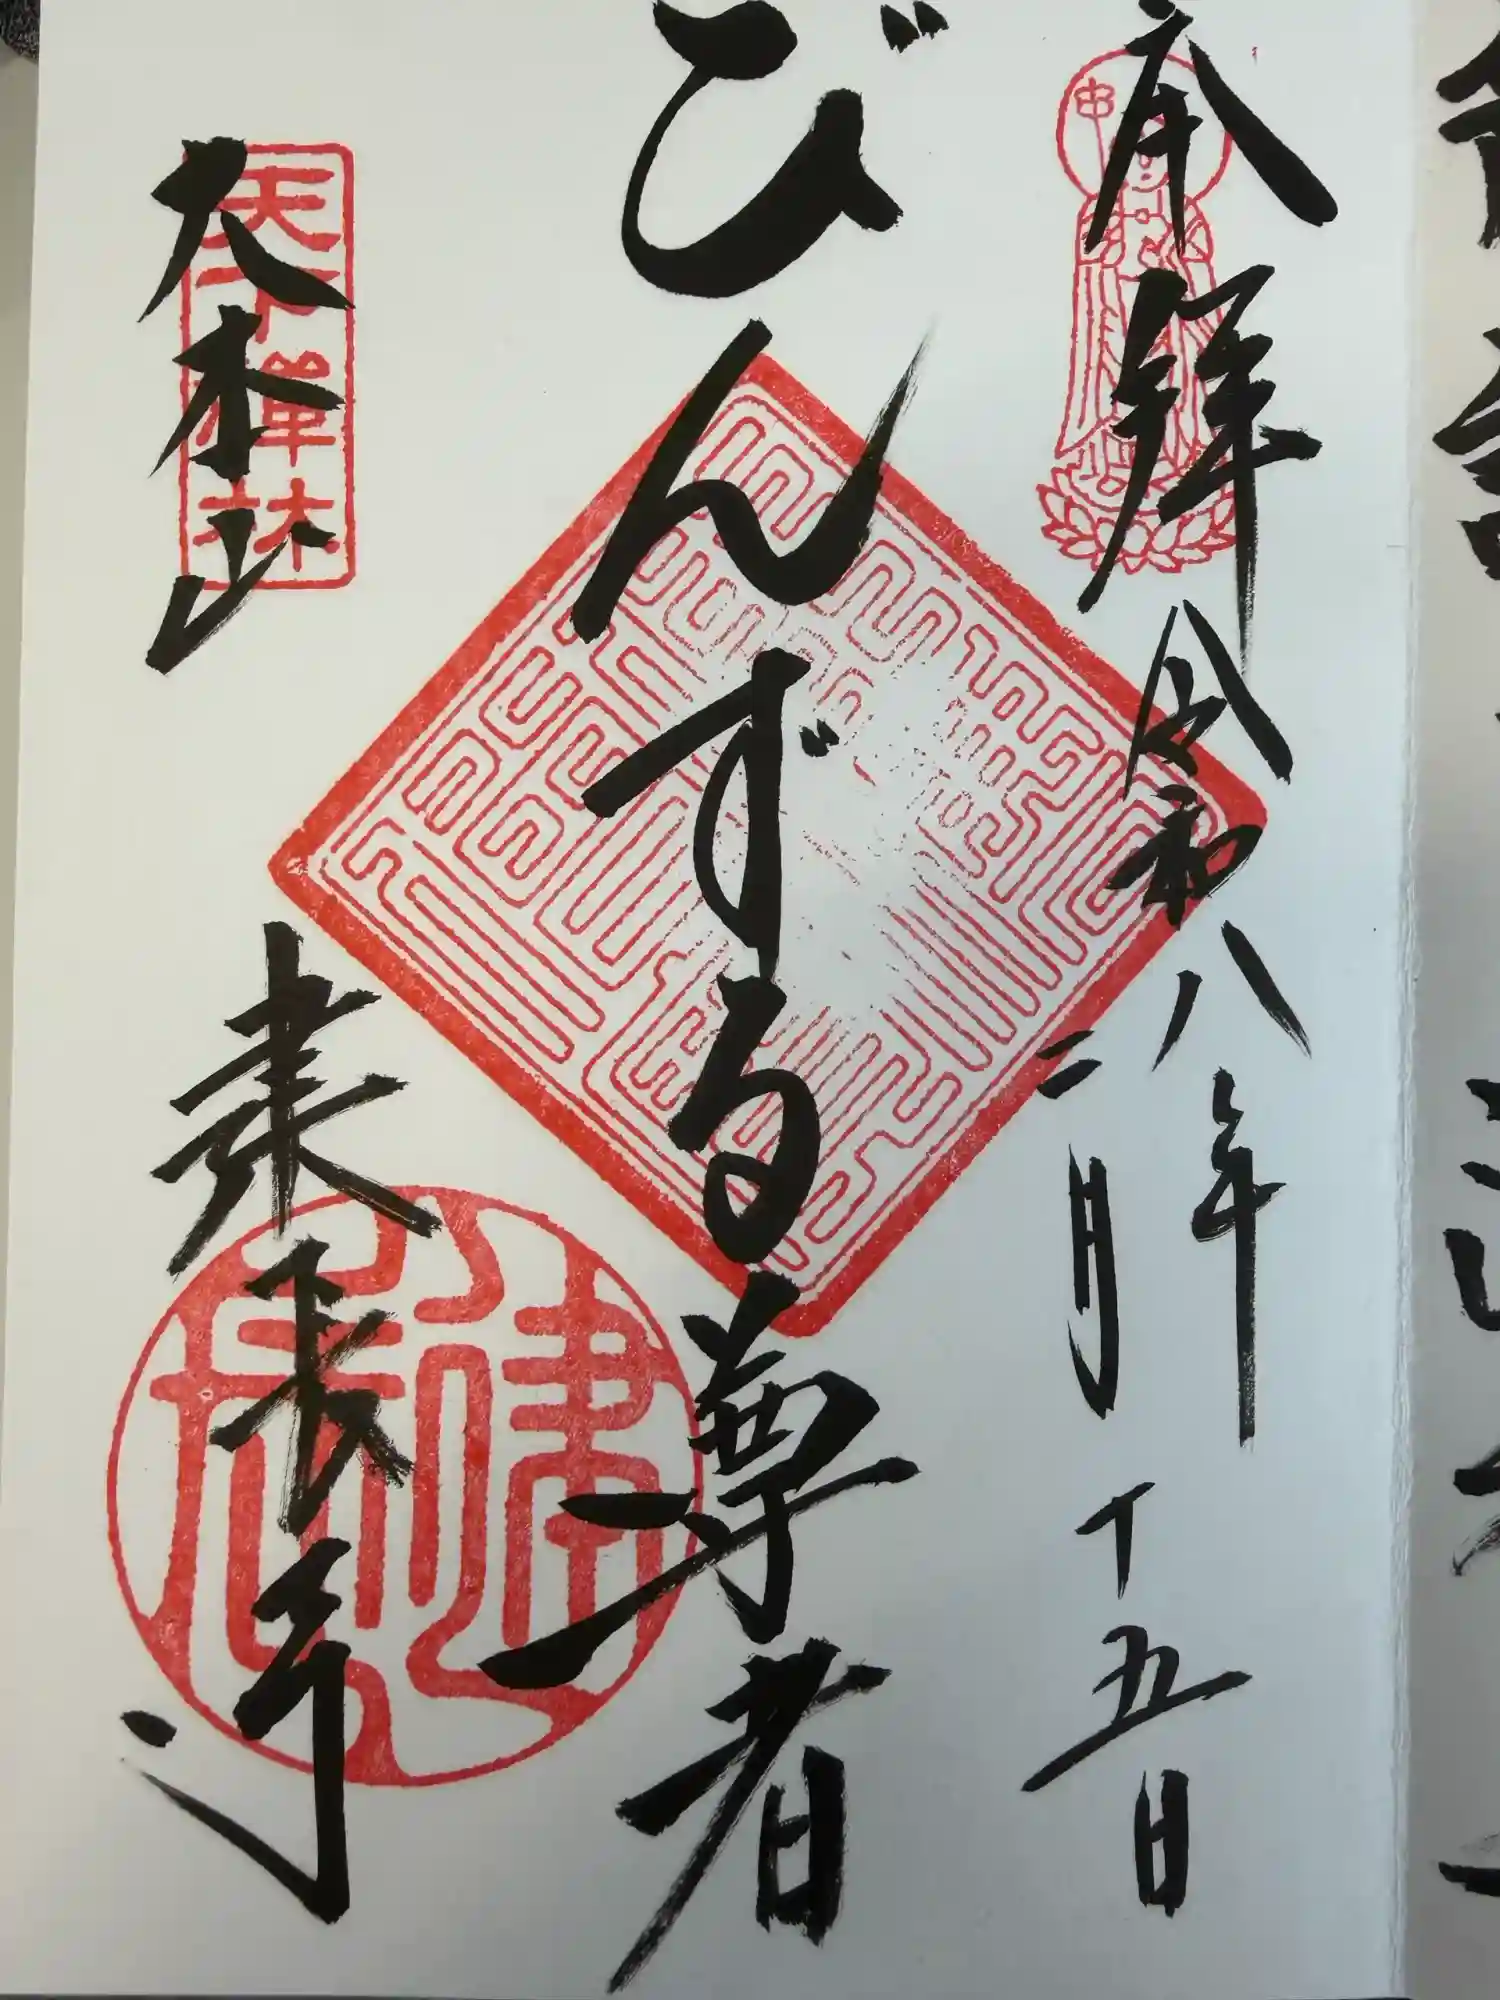 奉拝 令和八年
二月十五日
びんずる尊者
大本山 建長寺
天下禪林